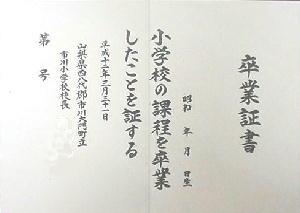 卒業証書
昭和 年 月 日生
小学校の課程を卒業
したことを証する
平成十二年三月三十一日
山梨県西八代郡市川大門町立
市川小学校校長
第 号